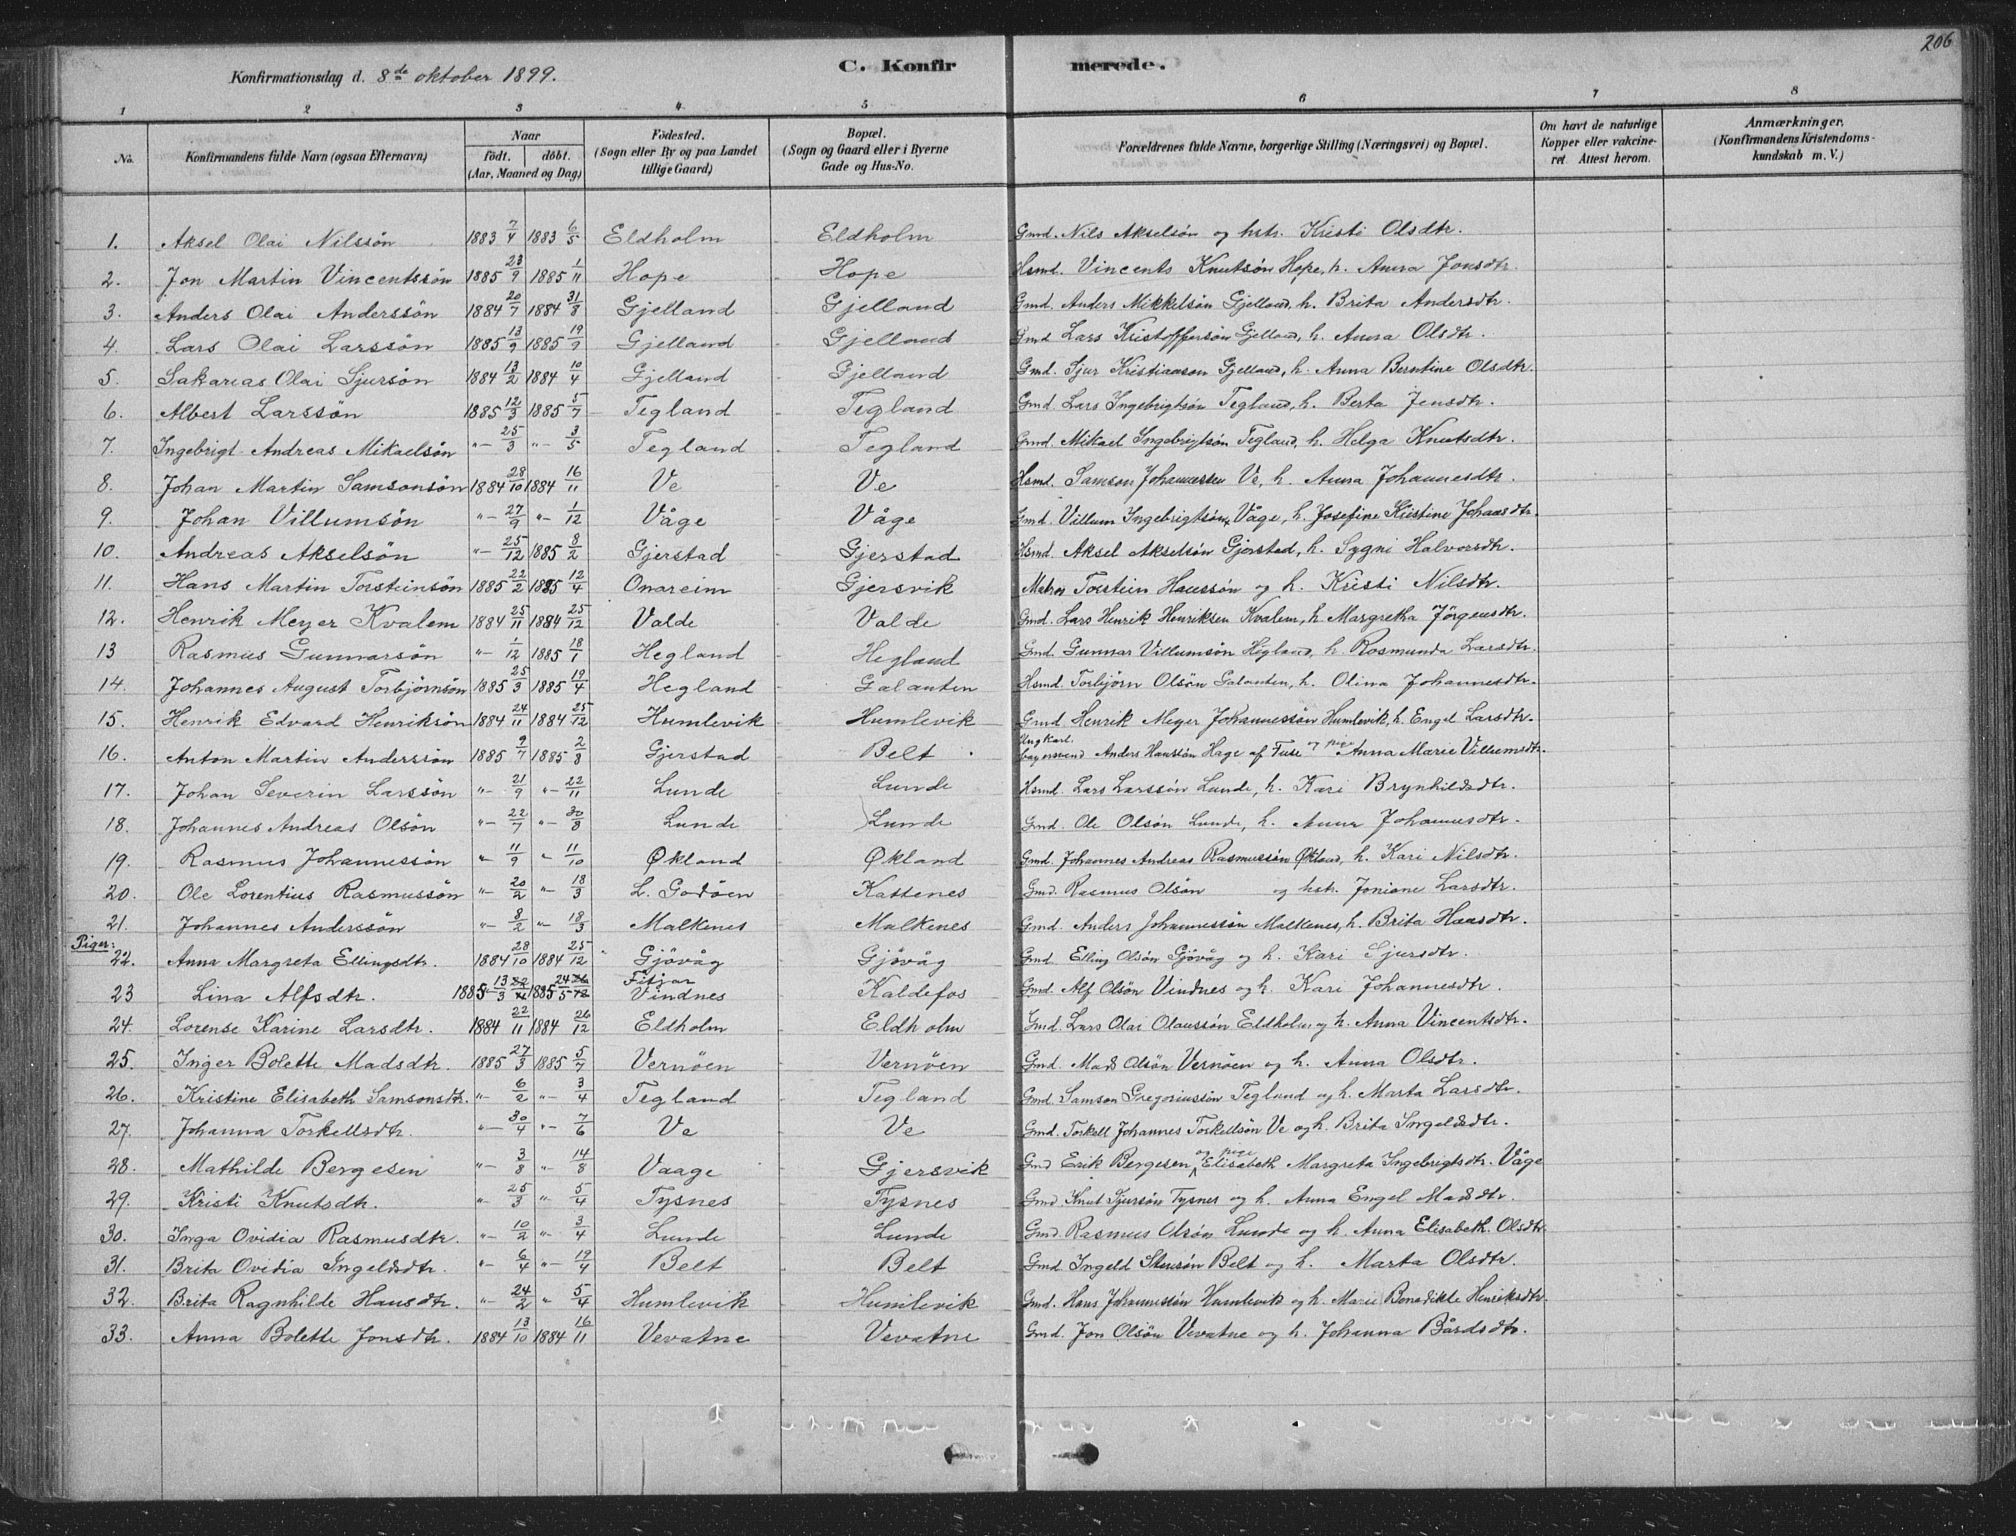 206
Konfirmationsdag d. 8de oktober 1899. C. Konfir merede.
1 2 3 4 5 6 7 8
No. Konfirmandens fulde Navn (ogsaa Efternavn) Naar født. døbt. (Aar, Maaned og Dag) Fødested. (Sogn eller By og paa Landet tillige Gaard) Bopæl. (Sogn og Gaard eller i Byerne Gade og Hus-No. Forældrenes fulde Navne, borgerlige Stilling (Næringsvei) og Bopæl. Om havt de naturlige Kopper eller vakcineret. Attest herom. Anmærkninger. (Konfirmandens Kristendomskundskab m. V.)
1. Aksel Olai Nilssøn 1883 7/4 1883 6/5 Eldholm Eldholm Gmd. Nils Akselsøn og hstr. Kristi Olsdtr.
2. Jon Martin Vincentssøn 1885 23/9 1885 1/11 Hope Hope Hsmd. Vincents Knutsøn Hope, h. Anna Jonsdtr.
3. Anders Olai Anderssøn 1884 20/7 1884 31/8 Gjelland Gjelland Gmd. Anders Mikkelsøn Gjelland, h. Brita Andersdtr.
4. Lars Olai Larssøn 1885 13/9 1885 19/9 Gjelland Gjelland Gmd Lars Kristoffersøn Gjelland, h. Anna Olsdtr.
5. Sakarias Olai Sjursøn 1884 13/2 1884 10/4 Gjelland Gjelland Gmd. Sjur Kristiansøn Gjelland, h. Anna Berntine Olsdtr.
6. Albert Larssøn 1885 12/3 1885 5/7 Tegland Tegland Gmd. Lars Ingebrigtsøn Tegland, h. Berta Jensdtr.
7. Ingebrigt Andreas Mikaelsøn "- 25/3 "- 3/5 Tegland Tegland Gmd. Mikael Ingebrigtsøn Tegland, h. Helga Knutsdtr.
8. Johan Martin Samsonsøn 1884 28/10 1884 16/11 Ve Ve Hsmd. Samson Johannessen Ve, h. Anna Johannesdtr.
9. Johan Villumsøn "- 27/9 "- 1/12 Våge Våge Gmd. Villum Ingebrigtsøn Våge, h. Josefine Kristine Johansdtr.
10. Andreas Akselsøn "- 25/12 1885 8/2 Gjerstad Gjerstad Hsmd. Aksel Akselsøn Gjerstad, h. Sygni Halvorsdtr.
11. Hans Martin Torsteinsøn 1885 22/2 1885 12/4 Onareim Gjersvik Matros Torstein Hanssøn og h. Kristi Nilsdtr.
12. Henrik Meyer Kvalem 1884 25/11 1884 25/12 Valde Valde Gmd. Lars Henrik Henriksen Kvalem, h. Margretha Jørgensdtr.
13 Rasmus Gunnarsøn "- 1/12 1885 18/1 Hegland Hegland Gmd. Gunnar Villumsøn Hegland, h. Rosmunda Larsdtr.
14. Johannes August Torbjørnsøn 1885 25/3 1885 19/4 Hegland Galanten Hsmd. Torbjørn Olsøn Galanten, h. Olina Johannesdtr.
15. Henrik Edvard Henriksøn 1884 24/11 1884 25/12 Humlevik Humlevik Gmd Henrik Meyer Johannessøn Humlevik, h. Engel Larsdtr.
16. Anton Martin Anderssøn 1885 9/7 1885 2/8 Gjerstad Belt Ungkarl. bagersvend Anders Hanssøn Hage af Fuse og pige Anna Marie Villumsdtr.
17. Johan Severin Larssøn "- 21/9 "- 22/11 Lunde Lunde Hsmd. Lars Larssøn Lunde, h. Kari Brynhildsdtr.
18. Johannes Andreas Olsøn "- 22/7 "- 30/8 Lunde Lunde Gmd. Ole Olsøn Lunde, h. Anna Johannesdtr.
19. Rasmus Johannessøn "- 11/9 "- 11/10 Økland Økland Gmd. Johannes Andreas Rasmussøn Økland, h. Kari Nilsdtr.
20. Ole Lorentius Rasmussøn "- 20/2 "- 18/3 L. Godøen Kattenes Gmd. Rasmus Olsøn og hstr. Joniane Larsdtr.
21. Johannes Anderssøn "- 8/2 "- 18/3 Malkenes Malkenes Gmd. Anders Johannessøn Malkenes, h. Brita Hansdtr.
Piger:
22. Anna Margreta Ellingsdtr. 1884 28/10 1884 25/12 Gjøvåg Gjøvåg Gmd. Elling Olsøn Gjøvåg og h. Kari Sjursdtr.
23 Lina Alfsdtr. 1885 13/3 1885 24/5 Fitjar Vindnes Kaldefos Gmd. Alf Olsøn Vindnes og h. Kari Johannesdtr.
24. Lorense Karine Larsdtr. 1884 22/11 1884 26/12 Eldholm Eldholm Gmd. Lars Olai Olaussøn Eldholm og h. Anna Vincentsdtr.
25. Inger Bolette Madsdtr. 1885 27/3 1885 5/7 Vernøen Vernøen Gmd. Mads Olsøn Vernøen og h. Anna Olsdtr.
26. Kristine Elisabeth Samsonsdtr. "- 6/2 "- 3/4 Tegland Tegland Gmd. Samson Gregoriussøn Tegland og h. Marta Larsdtr.
27. Johanna Torkellsdtr. "- 30/4 "- 7/6 Ve Ve Gmd. Torkell Johannes Torkellsøn Ve og h. Brita Ingeldsdtr.
28. Mathilde Bergesen "- 3/8 "- 14/8 Vaage Gjersvik Gmd Erik Bergesen og pige Elisabeth Margreta Ingebrigtsdtr. Våge
29. Kristi Knutsdtr. "- 25/3 "- 5/4 Tysnes Tysnes Gmd Knut Sjursøn Tysnes og h. Anna Engel Madsdtr.
30. Inga Ovidia Rasmusdtr. "- 10/2 "- 3/4 Lunde Lunde Gmd. Rasmus Olsøn Lunde og h. Anna Elisabeth Olsdtr.
31. Brita Ovidia Ingeldsdtr. "- 6/4 "- 19/4 Belt Belt Gmd. Ingeld Stensøn Belt og h. Marta Olsdtr.
32. Brita Ragnhilde Hansdtr. "- 24/2 " 5/4 Humlevik Humlevik Gmd. Hans Johannessøn Humlevik og h. Marie Benedikte Henriksdtr.
33. Anna Bolette Jonsdtr. 1884 13/10 1884 16/11 Vevatne Vevatne Gmd. Jon Olsøn Vevatne og h. Johanna Bårdsdtr.